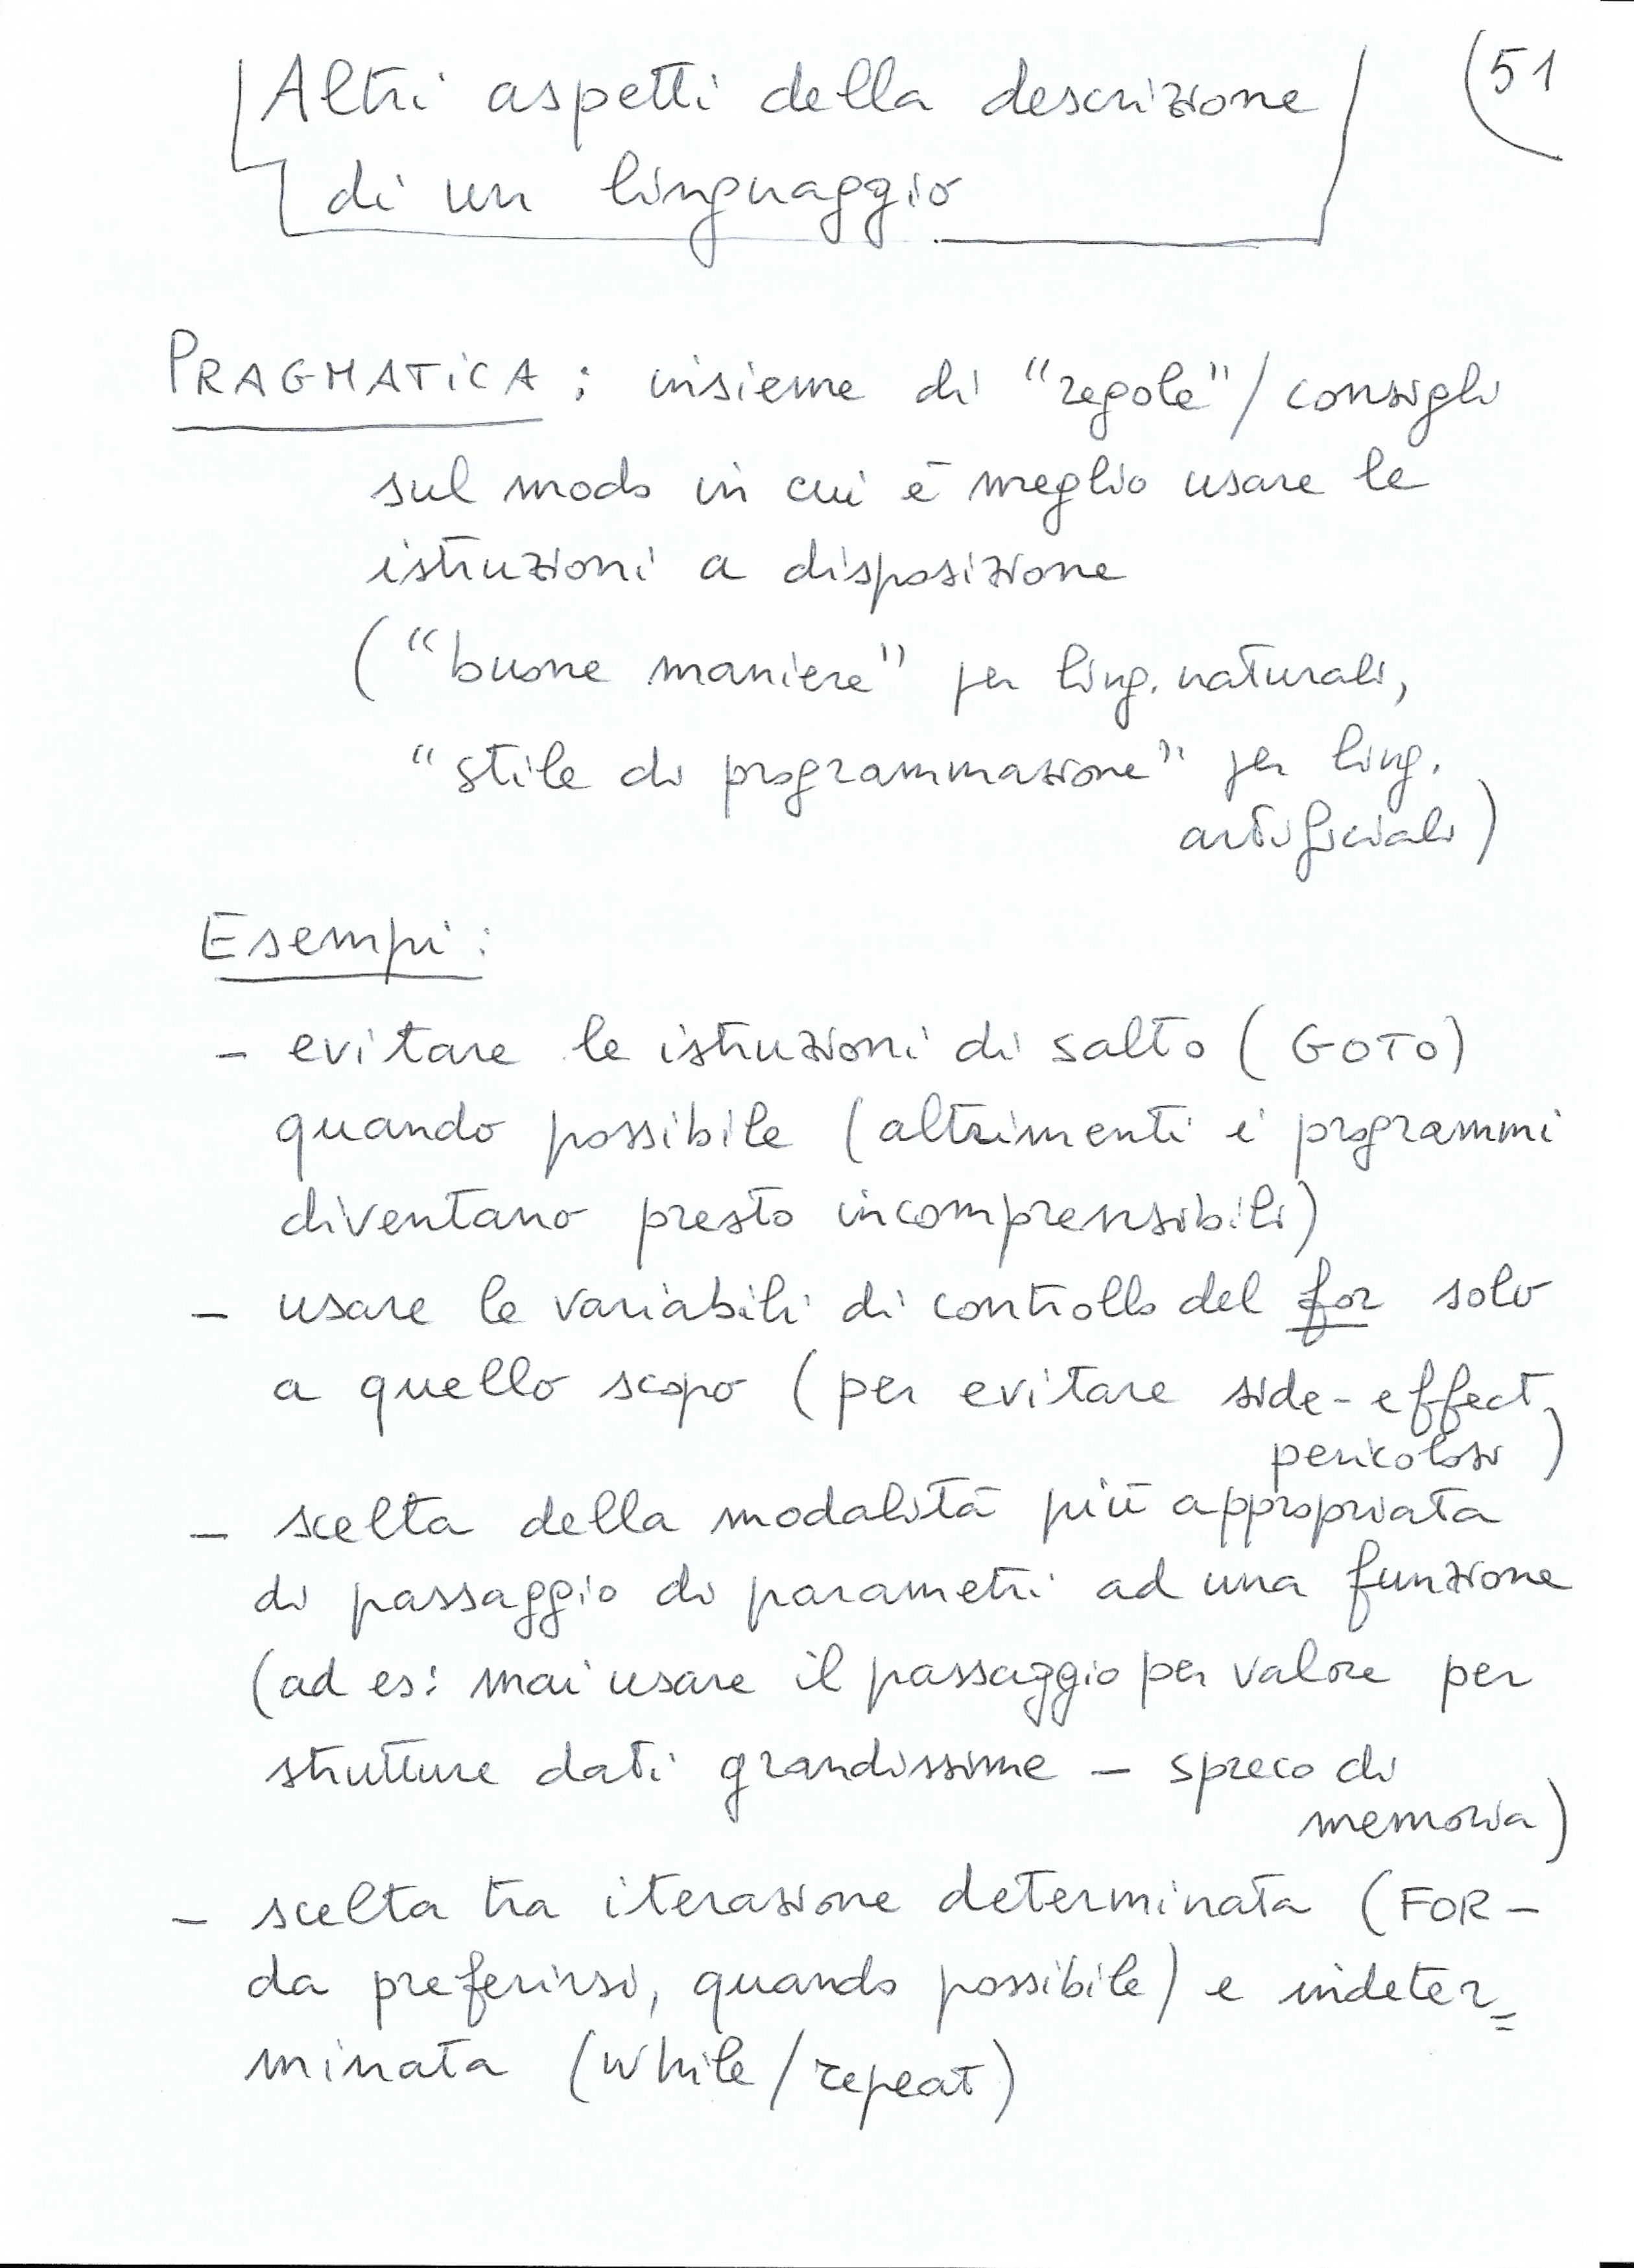 Altri aspetti della descrizione
di un linguaggio
51
PRAGMATICA : insieme di "regole" / consigli
sul modo in cui è meglio usare le
istruzioni a disposizione
("buone maniere" per ling. naturali,
"stile di programmazione" per ling.
artificiali)
Esempi:
- evitare le istruzioni di salto (GOTO)
quando possibile (altrimenti i programmi
diventano presto incomprensibili)
- usare le variabili di controllo del for solo
a quello scopo (per evitare side-effect
pericolosi)
- scelta della modalità più appropriata
di passaggio di parametri ad una funzione
(ad es: mai usare il passaggio per valore per
strutture dati grandissime - spreco di
memoria)
- scelta tra iterazione determinata (FOR -
da preferirsi, quando possibile) e indeter=
minata (while/repeat)